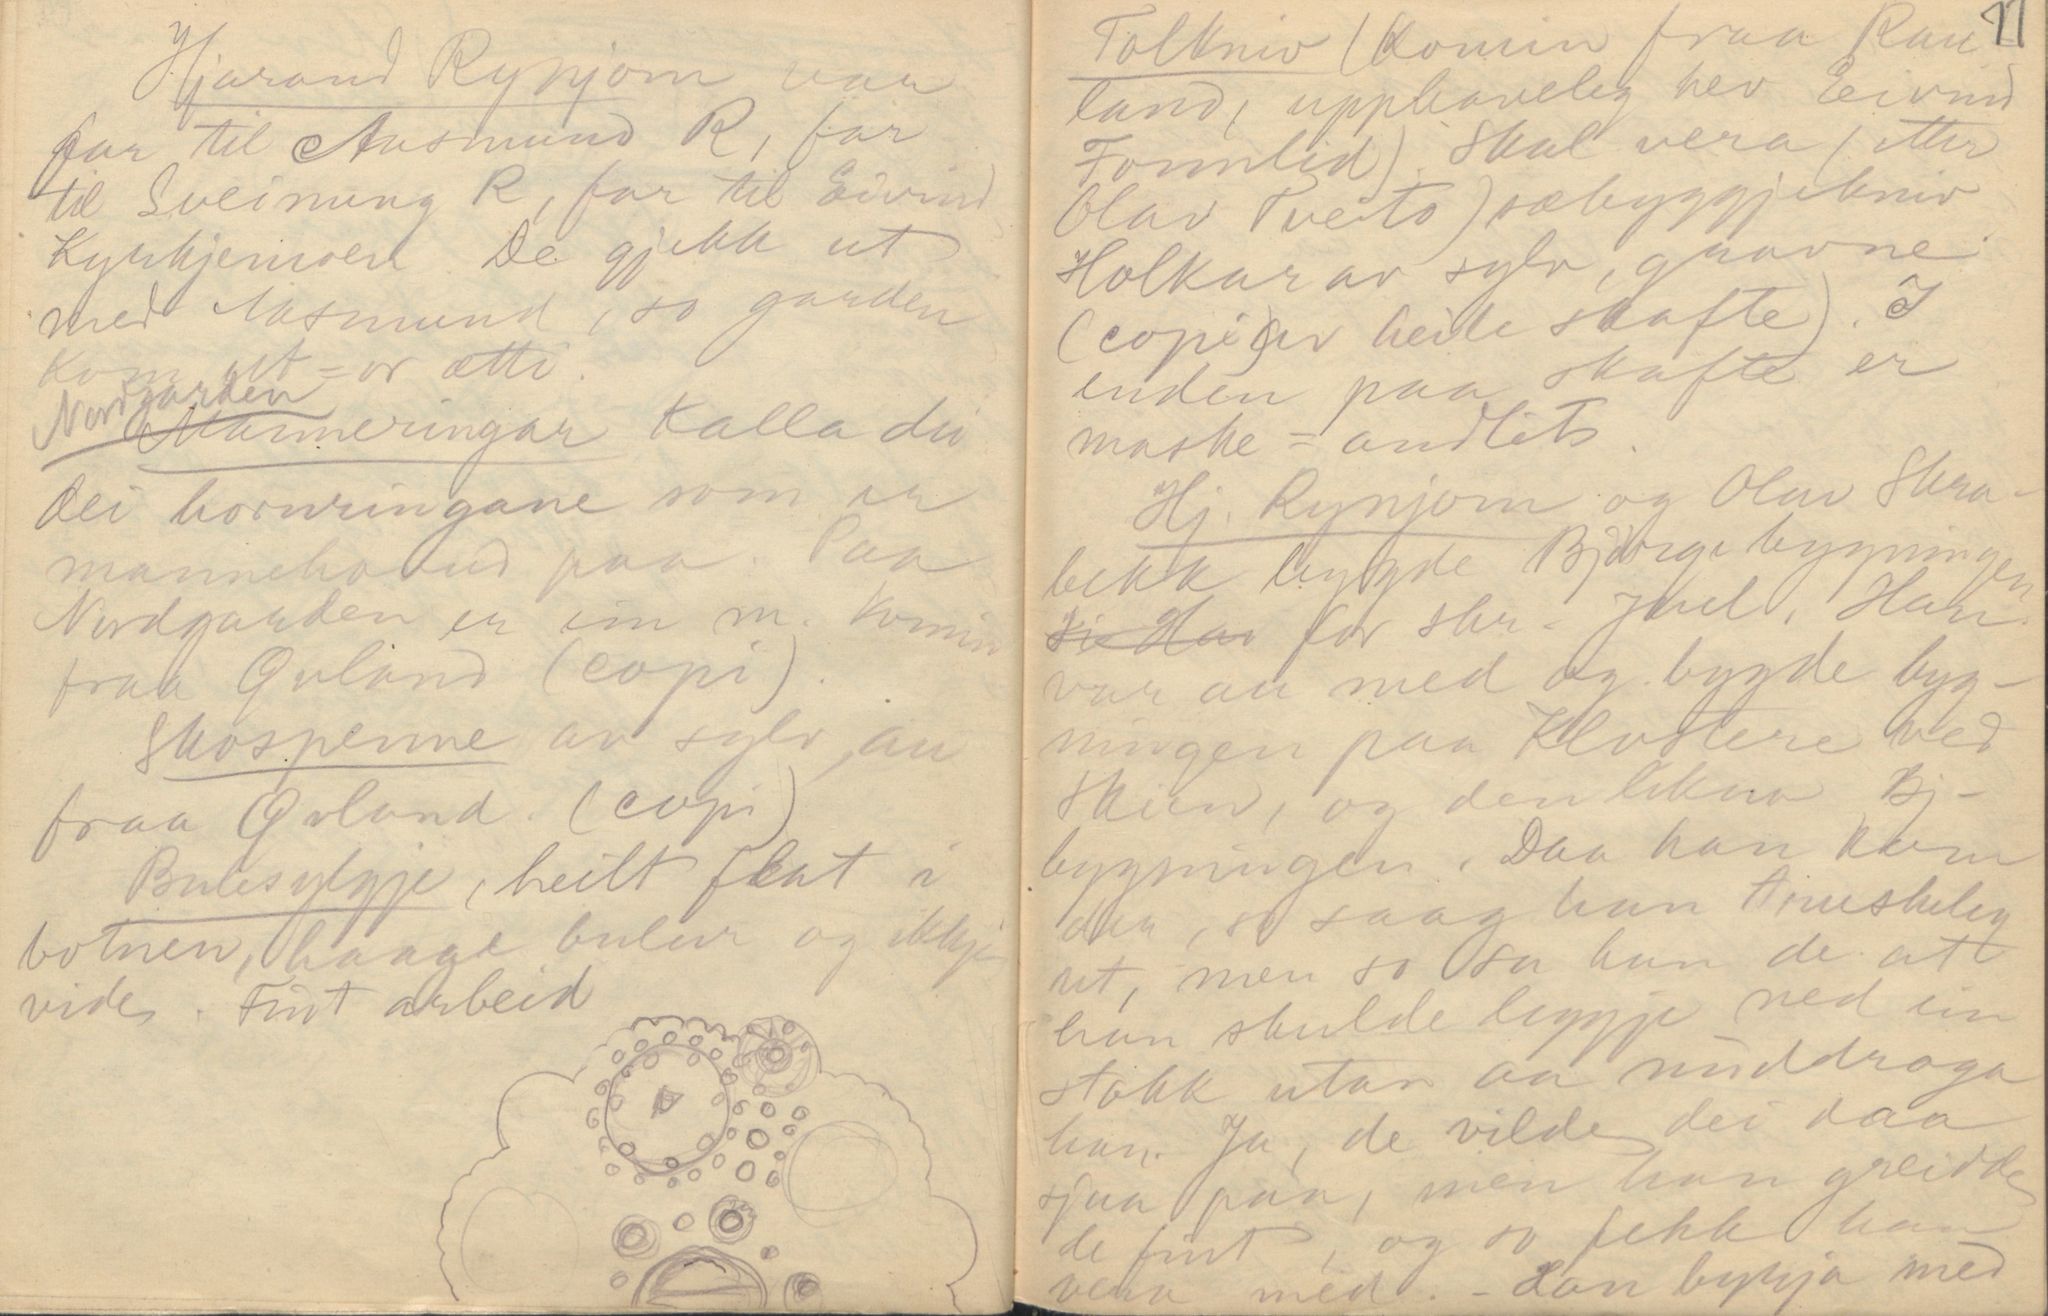 Hjarand Rynjom var
far til Aasmund R, far
til Sveinung R, far til Eivind
Kyrkjemoen. De gjekk ut
med Aasmund, so garden
kom ut = or ætti.
Nordgarden
Manneringar kalla dei
dei hornringane som er
mannehovud paa. Paa
Nordgarden er ein m. komin
fraa Qvland (copi).
Skospenne av sylv, au
fraa Qvland. (copi)
Bulesylgje, heilt flat i
botnen, haage bular og ikkje
vide. Fint arbeid
77
Tolkniv (komin fraa Rau-
land, upphaveleg hev Eivind
Fonnlid). Skal vera (etter
Olav Tveito) sæbyggjekniv
Holkar av sylv, gravne.
(copi av heile skafte). I
enden paa skafte er
maske = andlits.
Hj. Rynjom og Olav Skra-
bekk bygde Bjørgebygningen
for skr. Juel. Han
var au med og bygde byg-
ningen paa Klostere ved
Skien, og den likna Bj-
bygningen. Daa han kom
der, so saag han
ut, men so sa han de at
han skulde leggje ned ein
stokk utan aa middraga
han. Ja, de vilde dei daa
sjaa paa, men han greidde
de fint, og so fekk han
vera med. - Han bykja med